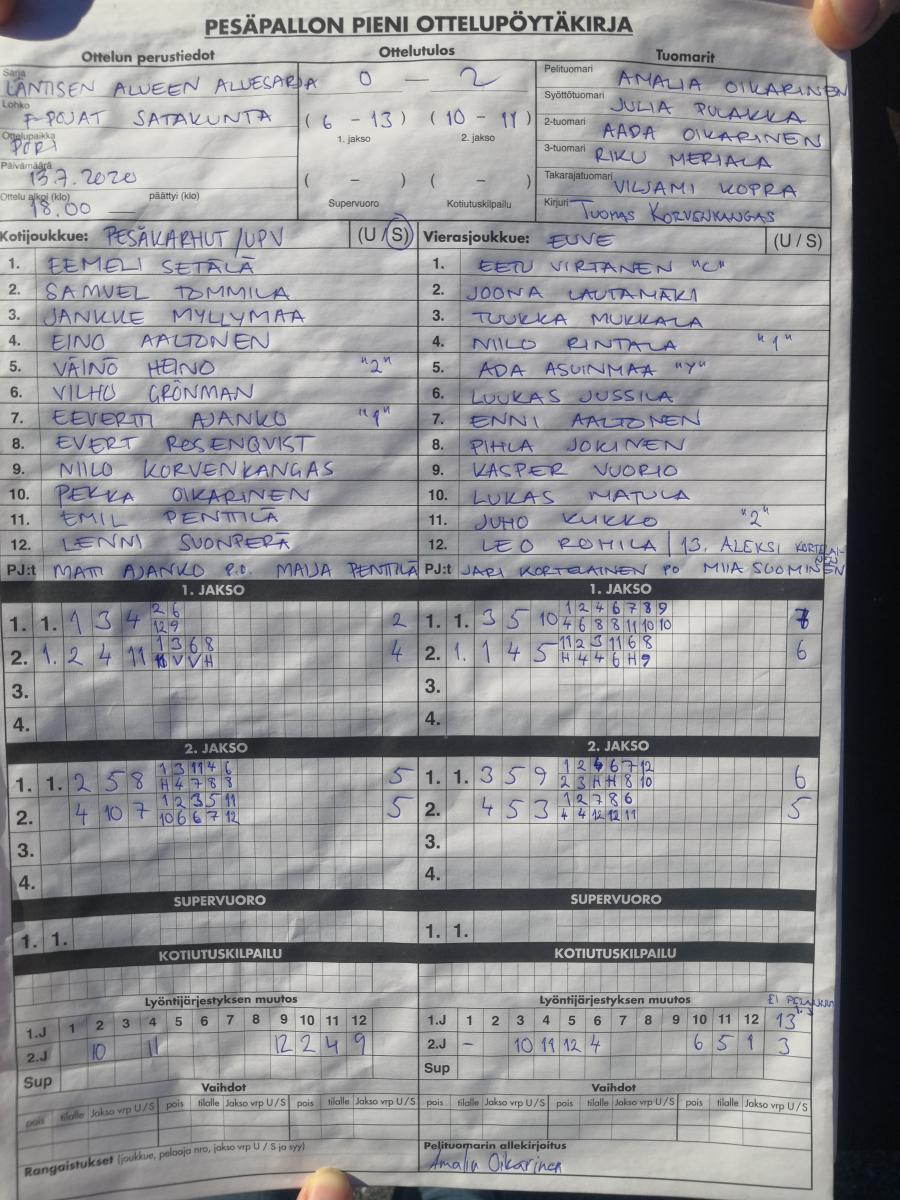 PESÄPALLON PIENI OTTELUPÖYTÄKIRJA
Ottelun perustiedot
Ottelutulos
Tuomarit
Sarja LÄNTISEN ALUEEN ALUESARJA
Lohko F-POJAT SATAKUNTA
Ottelupaikka PORI
Päivämäärä 13.7.2020
Ottelu alkoi (klo) 18.00 päättyi (klo)
0 – 2
( 6 - 13 ) ( 10 - 11 )
1. jakso 2. jakso
( – ) ( – )
Supervuoro Kotiutuskilpailu
Pelituomari AMALIA OIKARINEN
Syöttötuomari JULIA PULAKKA
2-tuomari AADA OIKARINEN
3-tuomari RIKU MERIALA
Takarajatuomari VILJAMI KOPRA
Kirjuri TUOMAS KORVENKANGAS
Kotijoukkue: PESÄKARHUT/UPV (U / S)
1. EEMELI SETÄLÄ
2. SAMUEL TOMMILA
3. JANKKE MYLLYMAA
4. EINO AALTONEN
5. VÄINÖ HEINO "2"
6. VILHO GRÖNMAN
7. EEVERTTI AJANKO "1"
8. EVERT ROSENQVIST
9. NIILO KORVENKANGAS
10. PEKKA OIKARINEN
11. EMIL PENTTILÄ
12. LENNI SUONPERÄ
PJ:t MATTI AJANKO P.O. MAIJA PENTTILÄ
Vierasjoukkue: EUVE (U / S)
1. EETU VIRTANEN "C"
2. JOONA LAUTAMÄKI
3. TUUKKA MUKKALA
4. NIILO RINTALA "1"
5. ADA ASUINMAA "Y"
6. LUUKAS JUSSILA
7. ENNI AALTONEN
8. PIHLA JOKINEN
9. KASPER VUORIO
10. LUKAS MATULA
11. JUHO KUKKO "2"
12. LEO ROHILA | 13. ALEKSI KORTELAINEN
PJ:t JARI KORTELAINEN PO MIIA SUOMINEN
1. JAKSO
1. 1. 1 3 4 2 6 2
12 9
2. 1. 2 4 11 1 3 6 8 4
V V H
3.
4.
1. JAKSO
1. 1. 3 5 10 1 2 4 6 7 8 9 7
4 6 8 8 11 10 10
2. 1. 1 4 5 11 2 3 11 6 8 6
H 4 4 6 H 9
3.
4.
2. JAKSO
1. 1. 2 5 8 1 3 11 4 6 5
H 4 7 8 8
2. 4 10 7 1 2 3 5 11 5
10 6 6 7 12
3.
4.
2. JAKSO
1. 1. 3 5 9 1 2 4 6 7 12 6
2 3 H H 8 10
2. 4 5 3 1 2 7 8 6 5
4 4 12 12 11
3.
4.
SUPERVUORO
1. 1.
SUPERVUORO
1. 1.
KOTIUTUSKILPAILU
KOTIUTUSKILPAILU
Lyöntijärjestyksen muutos
1.J 1 2 3 4 5 6 7 8 9 10 11 12
2.J 10 11 12 2 4 9
Sup
Lyöntijärjestyksen muutos EI
1.J 1 2 3 4 5 6 7 8 9 10 11 12 13
2.J - 10 11 12 4 6 5 1 3
Sup
Vaihdot
pois tilalle Jakso vrp U / S pois tilalle Jakso vrp U / S pois tilalle Jakso vrp U / S
Vaihdot
pois tilalle Jakso vrp U / S pois tilalle Jakso vrp U / S pois tilalle Jakso vrp U / S
Rangaistukset (joukkue, pelaaja nro, jakso vrp U / S ja syy)
Pelituomarin allekirjoitus
Amalia Oikarinen